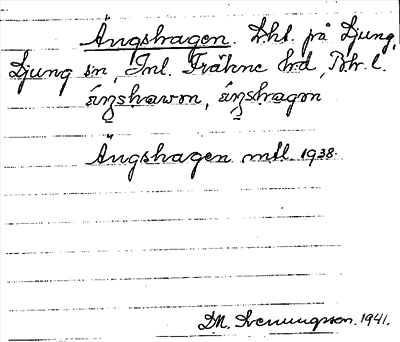 Ängshagen. Lht. på Ljung,
Ljung sn, Inl. Fräkne hd, Boh. l.
ä́ŋshawən, ä́ŋshagən
Ängshagen mtl. 1938.
D.M. Svenungsson. 1941.